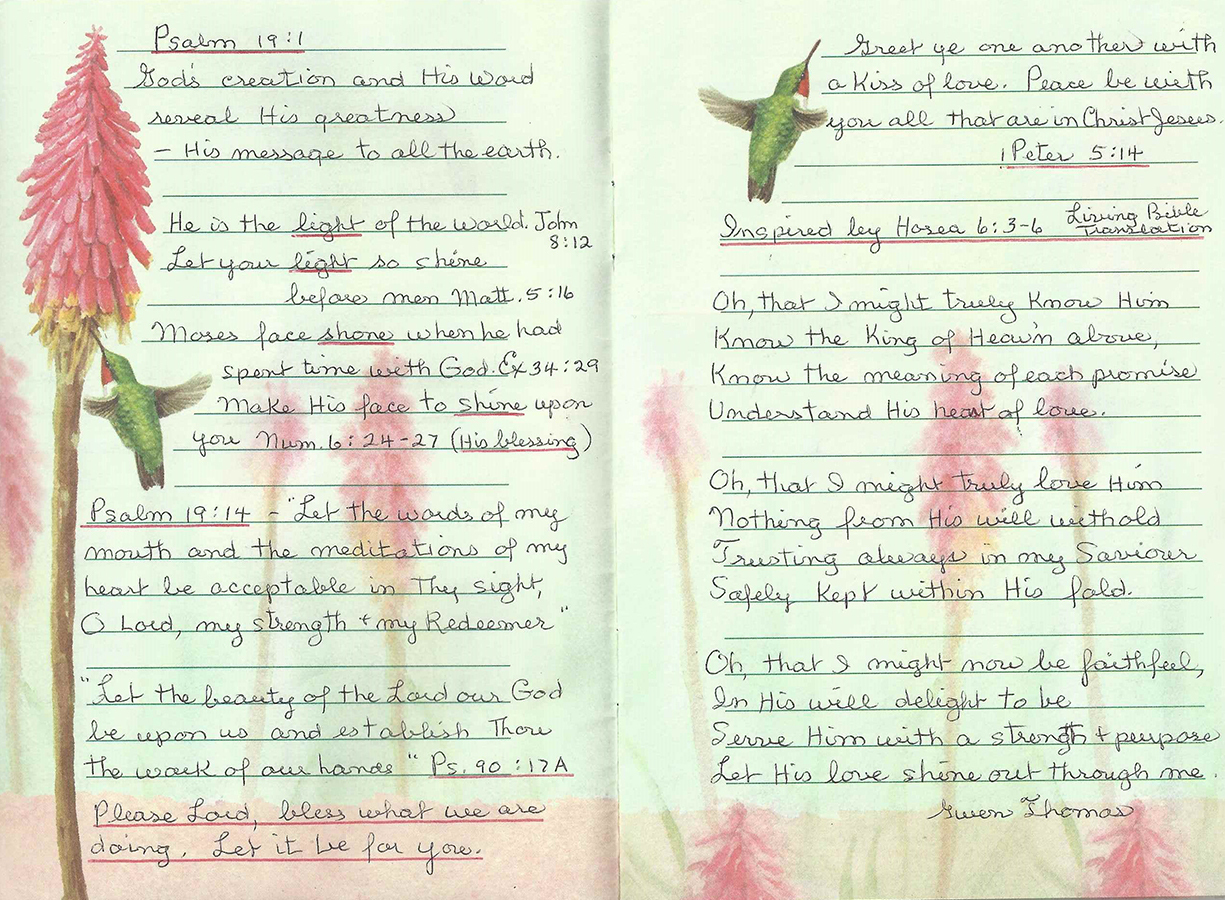 Psalm 19:1
God's creation and His Word
reveal His greatness
– His message to all the earth.
He is the light of the world. John
8:12
Let your light so shine
before men Matt. 5:16
Moses face shone when he had
spent time with God. Ex 34:29
Make His face to shine upon
you Num. 6:24-27 (His blessing)
Psalm 19:14 – "Let the words of my
mouth and the meditations of my
heart be acceptable in Thy sight,
O Lord, my strength + my Redeemer"
"Let the beauty of the Lord our God
be upon us and establish Thou
the work of our hands" Ps. 90:17A
Please Lord, bless what we are
doing. Let it be for you.
Greet ye one another with
a Kiss of love. Peace be with
you all that are in Christ Jesus.
1 Peter 5:14
Inspired by Hosea 6:3-6 Living Bible
Translation
Oh, that I might truly Know Him
Know the King of Heav'n above,
Know the meaning of each promise
Understand His heart of love.
Oh, that I might truly love Him
Nothing from His will withold
Trusting always in my Saviour
Safely Kept within His fold.
Oh, that I might now be faithful,
In His will delight to be
Serve Him with a strength + purpose
Let His love shine out through me.
Gwen Thomas